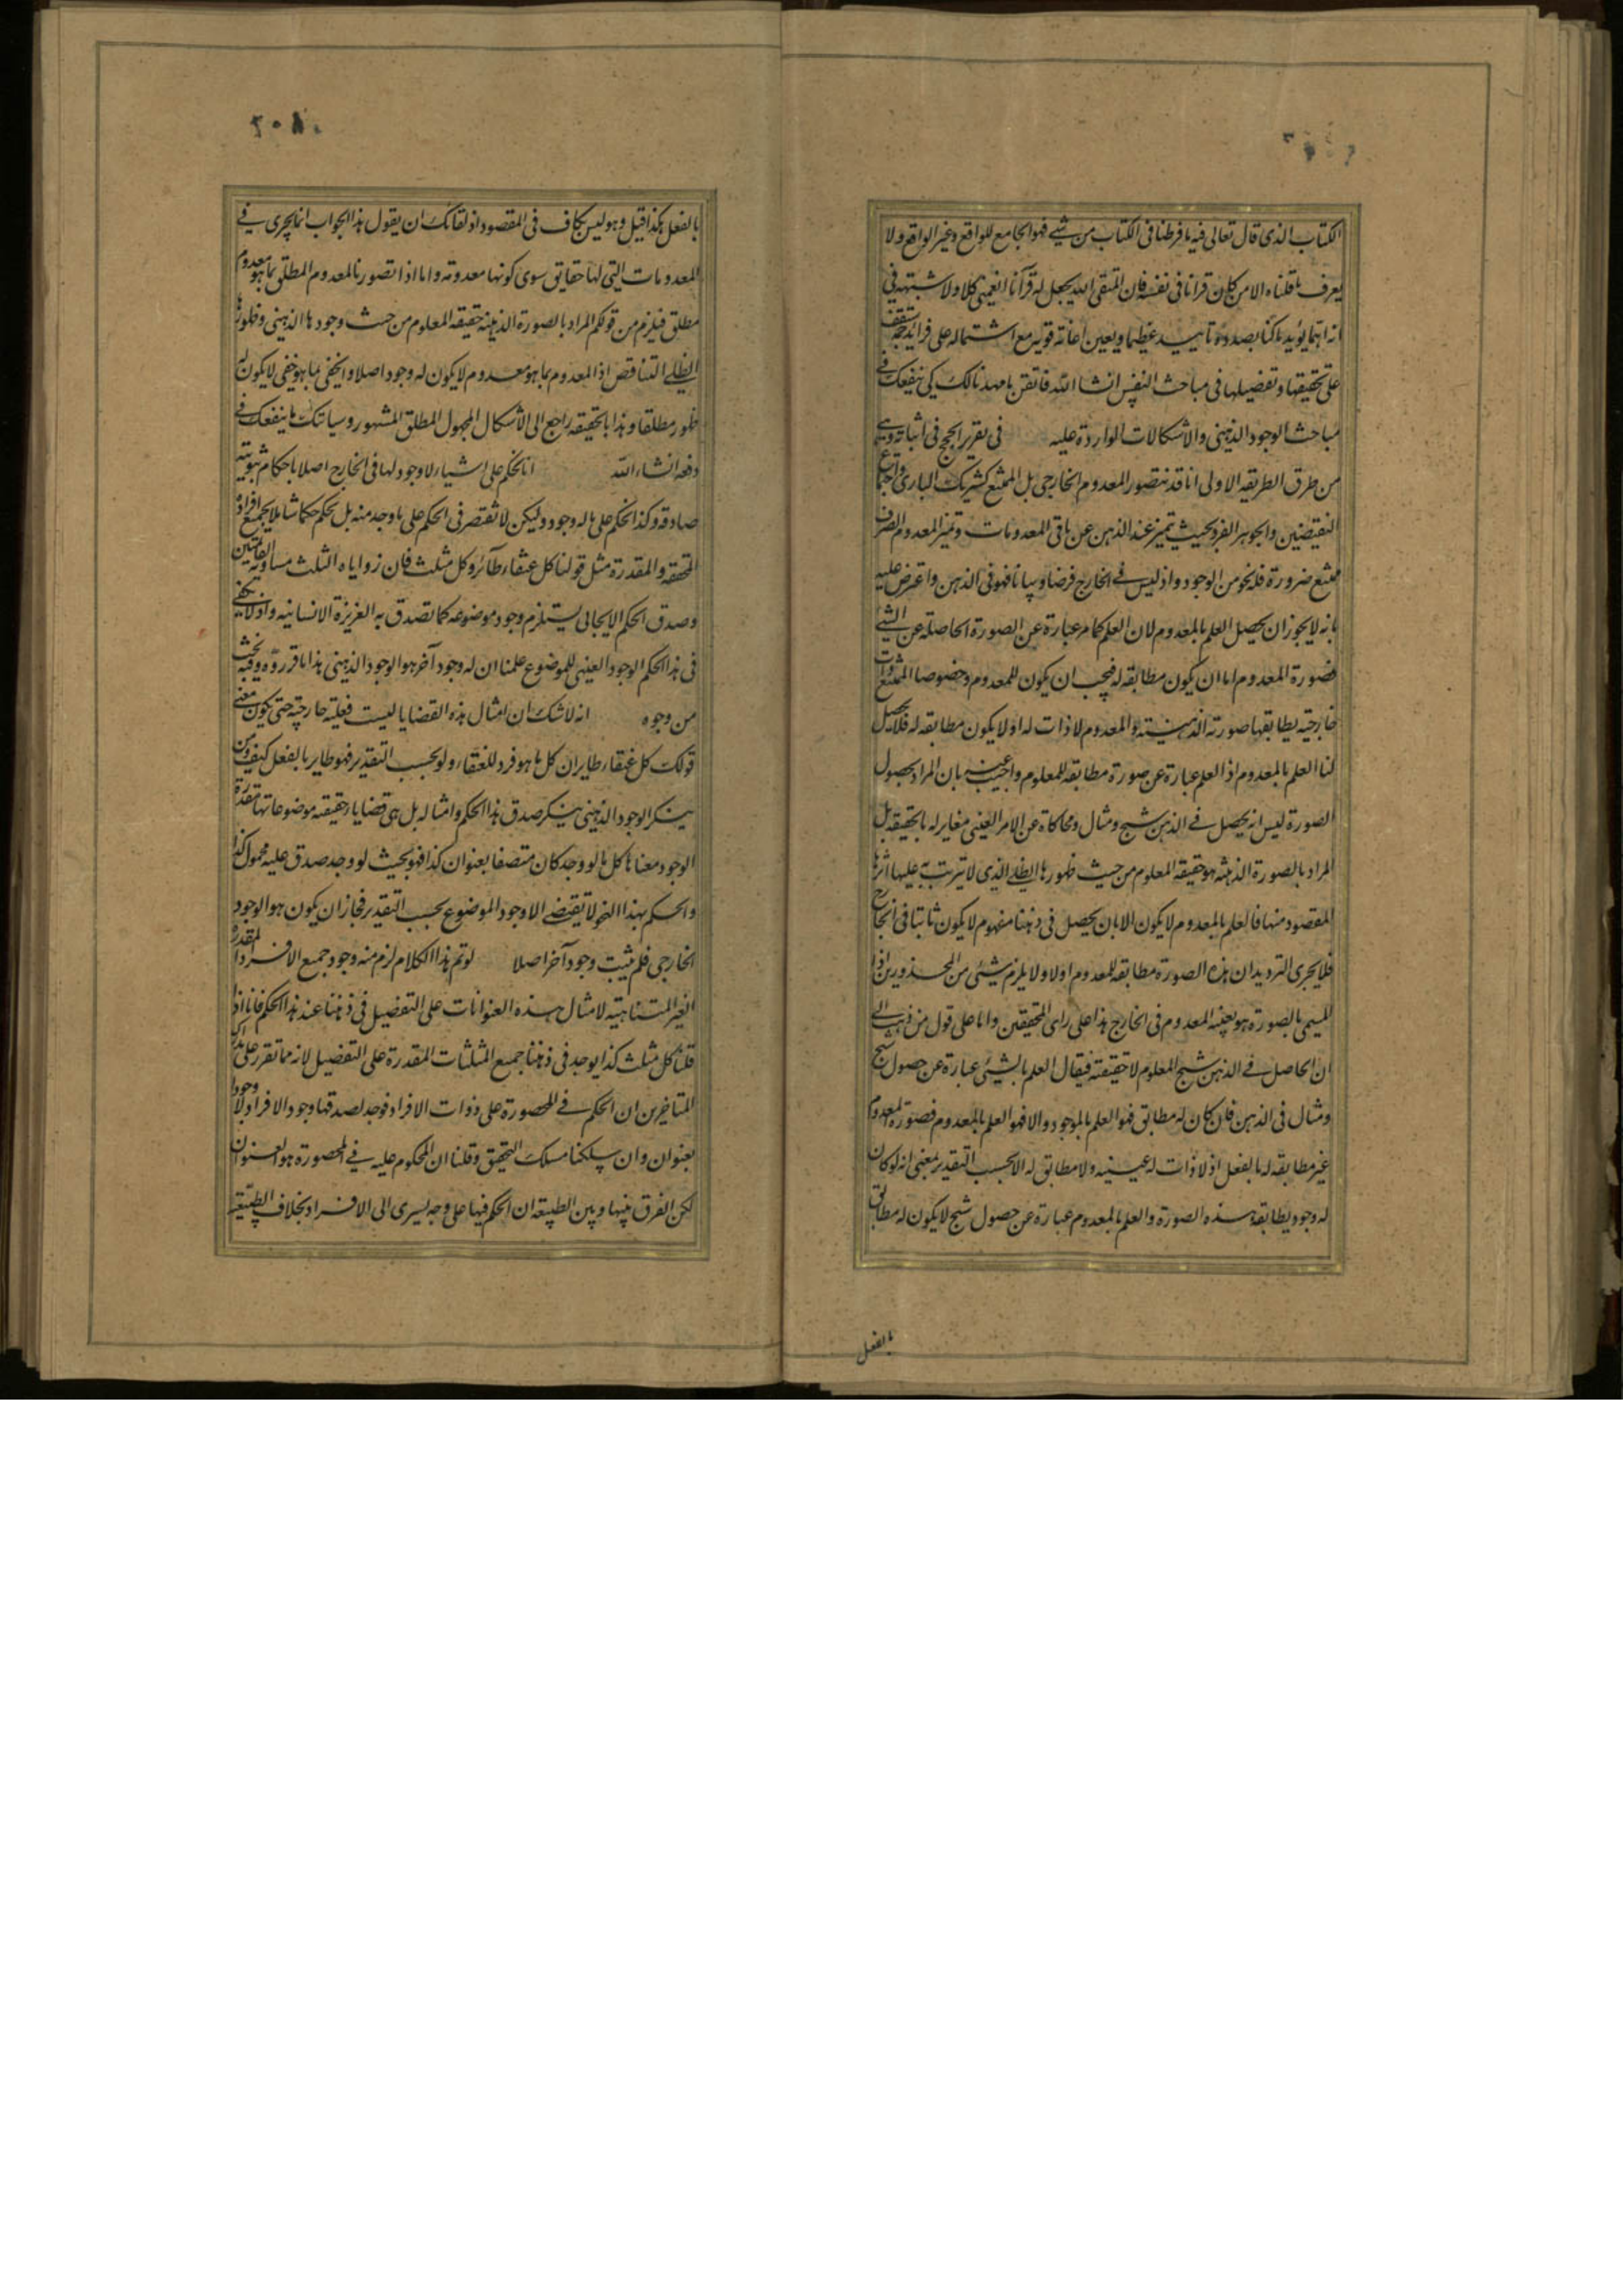 الكتاب الذى قال تعالى فيه ما فرطنا فى الكتاب من شئ فهو الجامع للواقع وغير الواقع ولا
يعرف ما قلناه الا من كان قرانا فى نفسه فان المتقى الله يجعل له فرقانا كلا ولا شبهة فى
انه انما يؤيد ما كنا بصدده تاييدا عظيما ويعين اعانة قوية مع اشتماله على فرايد جمة ستقف
على تحقيقها وتفصيلها فى مباحث النفس انشاء الله فاتقن ما مهدنا لك كى ينفعك فى
مباحث الوجود الذهنى والاشكالات الواردة عليه فى تقرير الحجج فى اثباته وهى
من طرق الطريقة الاولى انا قد نتصور المعدوم الخارجى بل الممتنع كشريك البارى واجتماع
النقيضين والجوهر الفرد بحيث يتميز عند الذهن عن باقى المعدومات وتميز المعدوم الصرف
ممتنع ضرورة فله نحو من الوجود واذ ليس فى الخارج فرضا وبيانا فهو فى الذهن واعترض عليه
بانه لا يجوز ان يحصل العلم بالمعدوم لان العلم كما مر عبارة عن الصورة الحاصلة عن الشئ
فصورة المعدوم اما ان يكون مطابقه له فيجب ان يكون للمعدوم وخصوصا الممتنع ذات
خارجية يطابقها صورته الذهنية والمعدوم لا ذات له او لا يكون مطابقه له فلا يحصل
لنا العلم بالمعدوم اذ العلم عبارة عن صورة مطابقه للمعلوم واجيب عنه بان المراد بحصول
الصورة ليس انه يحصل فى الذهن شبح ومثال ومحاكاة عن الامر العينى مغاير له بالحقيقه بل
المراد بالصورة الذهنيه هو حقيقه المعلوم من حيث ظهورها الظلى الذى لا يترتب به عليها اثرها
المقصود منها فالعلم بالمعدوم لا يكون الا بان يحصل فى ذهننا مفهوم لا يكون ثابتا فى الخارج
فلا يجرى الترديد ان هذه الصورة مطابقه للمعدوم اولا ولا يلزم شئ من المحذورين اذا
المسمى بالصورة هو بعينه المعدوم فى الخارج هذا على راى المحققين واما على قول من ذهب الى
ان الحاصل فى الذهن شبح المعلوم لا حقيقته فيقال العلم بالشئ عبارة عن حصول شبح
ومثال فى الذهن فان كان له مطابق فهو العلم بالموجود والا فهو العلم بالمعدوم فصورة المعدوم
غير مطابقه له بالفعل اذ لا ذات له عينيه ولا مطابق له الا بحسب التقدير بمعنى انه لو كان
له وجود يطابقه هذه الصورة والعلم بالمعدوم عبارة عن حصول شبح لا يكون له مطابق
بالفعل
٢٠٨
بالفعل هكذا قيل وهو ليس بكاف فى المقصود اذ لقائل ان يقول هذا الجواب انما يجرى فى
المعدومات التى لها حقايق سوى كونها معدومة واما اذا تصورنا المعدوم المطلق بما هو معدوم
مطلق فيلزم من قولكم المراد بالصورة الذهنيه حقيقه المعلوم من حيث وجودها الذهنى وظهورها
الظلى التناقض اذ المعدوم بما هو معدوم لا يكون له وجود اصلا والخفى بما هو خفى لا يكون له
ظهور مطلقا وهذا بالحقيقه راجع الى الاشكال المجهول المطلق المشهور وسياتيك ما ينفعك فى
دفعه انشاء الله انا نحكم على اشياء لا وجود لها فى الخارج اصلا باحكام ثبوتيه
صادقه وكذا نحكم على ما له وجود ولكن لا نقتصر فى الحكم على ما وجد منه بل نحكم حكما شاملا لجميع افراده
المحققه والمقدرة مثل قولنا كل عنقاء طائر وكل مثلث فان زواياه الثلث مساوية لقائمتين
وصدق الحكم الايجابى يستلزم وجود موضوعه كما تصدق به الغريزة الانسانيه واذ لا يكفى
فى هذا الحكم الوجود العينى للموضوع علمنا ان له وجود آخر هو الوجود الذهنى هذا ما قرروه وفيه بحث
من وجوه انه لا شك ان امثال هذه القضايا ليست فعليه خارجيه حتى يكون معنى
قولك كل عنقاء طاير ان كل ما هو فرد للعنقاء ولو بحسب التقدير فهو طاير بالفعل كيف ومن
ينكر الوجود الذهنى ينكر صدق هذا الحكم وامثاله بل هى قضايا حقيقه موضوعاتها مقدرة
الوجود معناها كل ما لو وجد كان متصفا بعنوان كذا فهو بحيث لو وجد صدق عليه محمول كذا
والحكم بهذا النحو لا يقتضى الا وجود الموضوع بحسب التقدير فجاز ان يكون هو الوجود
الخارجى فلم يثبت وجود آخر اصلا لو تم هذا الكلام لزم منه وجود جميع الافراد المقدرة
الغير المتناهيه لامثال هذه العنوانات على التفصيل فى ذهننا عند هذا الحكم فانا اذا
قلنا كل مثلث كذا يوجد فى ذهننا جميع المثلثات المقدرة على التفضيل لانه مما تقرر على مدارك
المتاخرين ان الحكم فى المحصورة على ذوات الافراد فوجد لصدقها وجود الافراد لا وجود
بعنوان وان سلكنا مسلك التحقيق وقلنا ان المحكوم عليه فى المحصورة هو العنوان
لكن الفرق بينها وبين الطبيعه ان الحكم فيها على وجه يسرى الى الافراد بخلاف الطبيعة